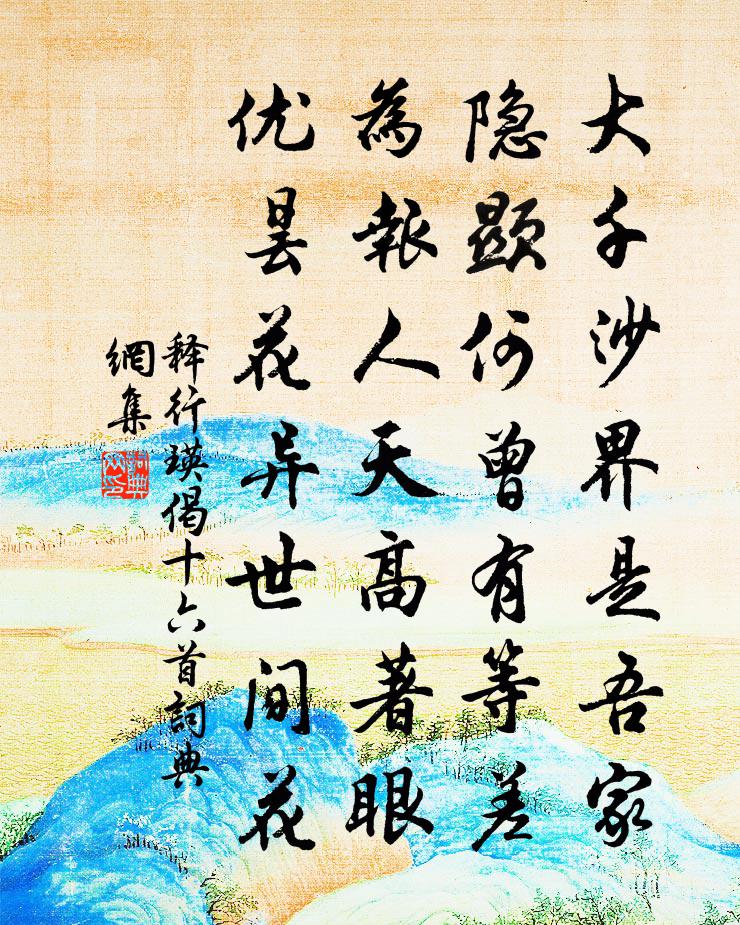 大千沙界是吾家
隐顯何曾有等差
為報人天高著眼
优昙花异世间花
释行瑛偈十六首詞典
網集
詞典